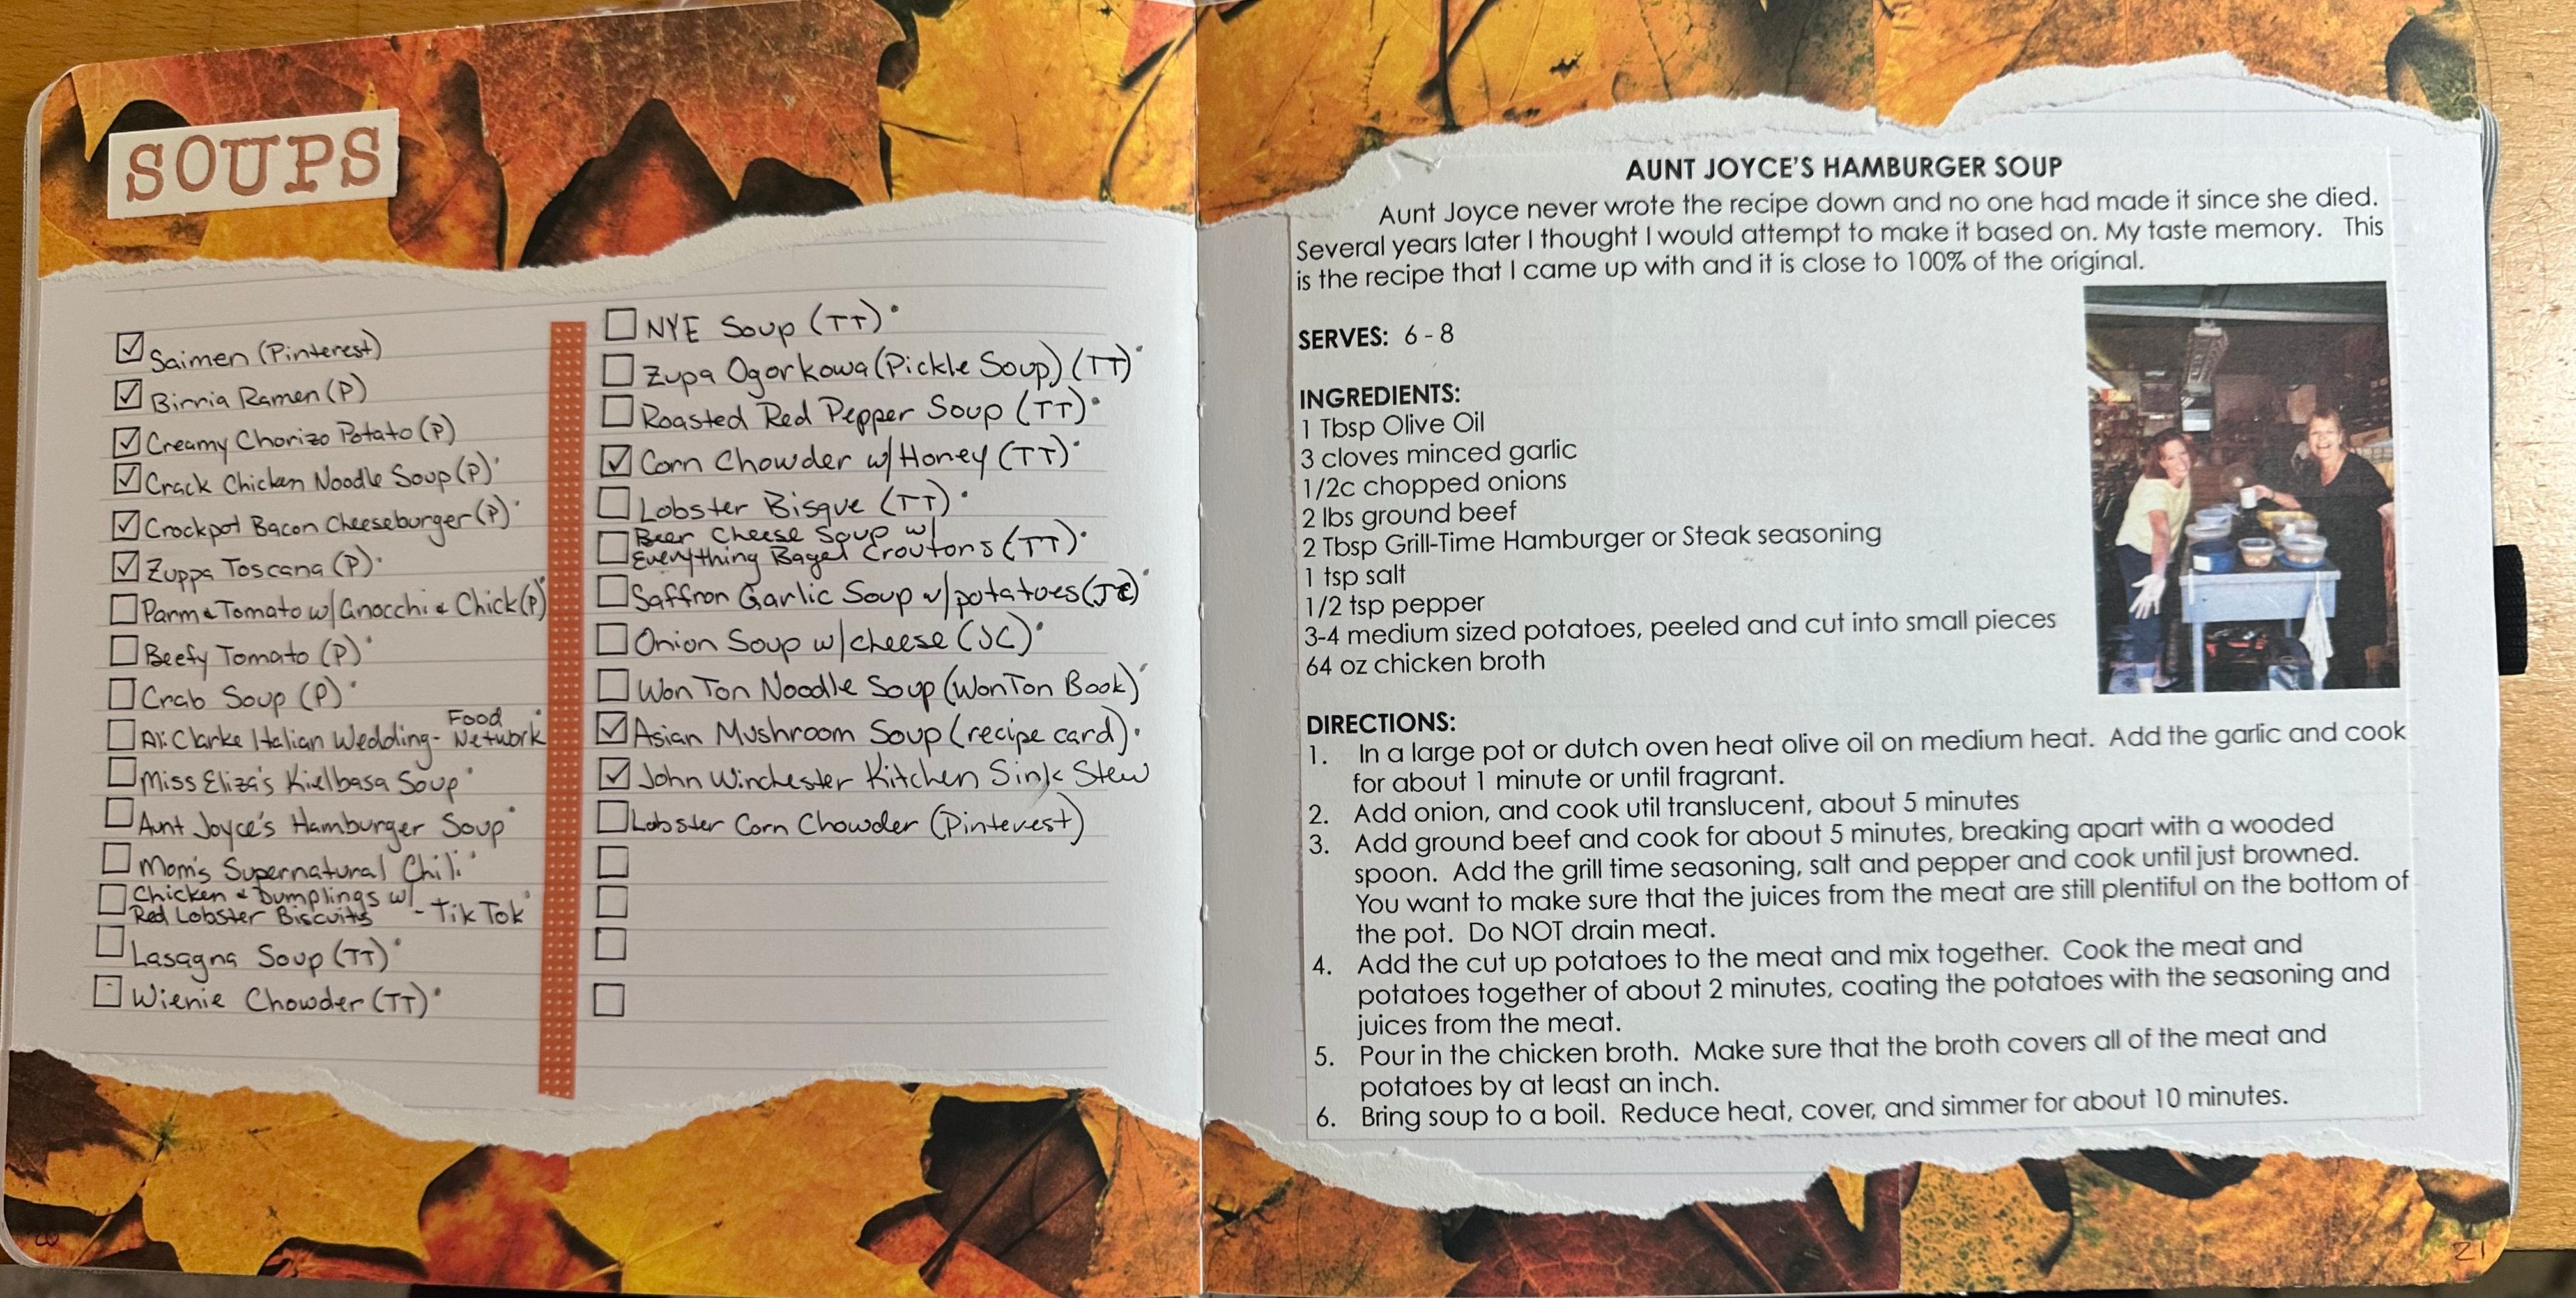 SOUPS
☑ Saimen (Pinterest)
☑ Birria Ramen (P)
☑ Creamy Chorizo Potato (P)
☑ Crack Chicken Noodle Soup (P)
☑ Crockpot Bacon Cheeseburger (P)
☑ Zuppa Toscana (P)
☐ Parm & Tomato w/ Gnocchi & Chick (P)
☐ Beefy Tomato (P)
☐ Crab Soup (P)
☐ Ali Clarke Italian Wedding - Food Network
☐ Miss Eliza's Kielbasa Soup
☐ Aunt Joyce's Hamburger Soup
☐ Mom's Supernatural Chili
☐ Chicken & Dumplings w/
Red Lobster Biscuits - TikTok
☐ Lasagna Soup (TT)
☐ Wienie Chowder (TT)
☐ NYE Soup (TT)
☐ Zupa Ogorkowa (Pickle Soup) (TT)
☐ Roasted Red Pepper Soup (TT)
☑ Corn Chowder w/ Honey (TT)
☐ Lobster Bisque (TT)
☐ Beer Cheese Soup w/
Everything Bagel Croutons (TT)
☐ Saffron Garlic Soup w/ potatoes (JC)
☐ Onion Soup w/ cheese (JC)
☐ Won Ton Noodle Soup (Won Ton Book)
☑ Asian Mushroom Soup (recipe card)
☑ John Winchester Kitchen Sink Stew
☐ Lobster Corn Chowder (Pinterest)
AUNT JOYCE'S HAMBURGER SOUP
Aunt Joyce never wrote the recipe down and no one had made it since she died.
Several years later I thought I would attempt to make it based on. My taste memory. This
is the recipe that I came up with and it is close to 100% of the original.
SERVES: 6 - 8
INGREDIENTS:
1 Tbsp Olive Oil
3 cloves minced garlic
1/2c chopped onions
2 lbs ground beef
2 Tbsp Grill-Time Hamburger or Steak seasoning
1 tsp salt
1/2 tsp pepper
3-4 medium sized potatoes, peeled and cut into small pieces
64 oz chicken broth
DIRECTIONS:
1. In a large pot or dutch oven heat olive oil on medium heat. Add the garlic and cook
for about 1 minute or until fragrant.
2. Add onion, and cook util translucent, about 5 minutes
3. Add ground beef and cook for about 5 minutes, breaking apart with a wooded
spoon. Add the grill time seasoning, salt and pepper and cook until just browned.
You want to make sure that the juices from the meat are still plentiful on the bottom of
the pot. Do NOT drain meat.
4. Add the cut up potatoes to the meat and mix together. Cook the meat and
potatoes together of about 2 minutes, coating the potatoes with the seasoning and
juices from the meat.
5. Pour in the chicken broth. Make sure that the broth covers all of the meat and
potatoes by at least an inch.
6. Bring soup to a boil. Reduce heat, cover, and simmer for about 10 minutes.
21